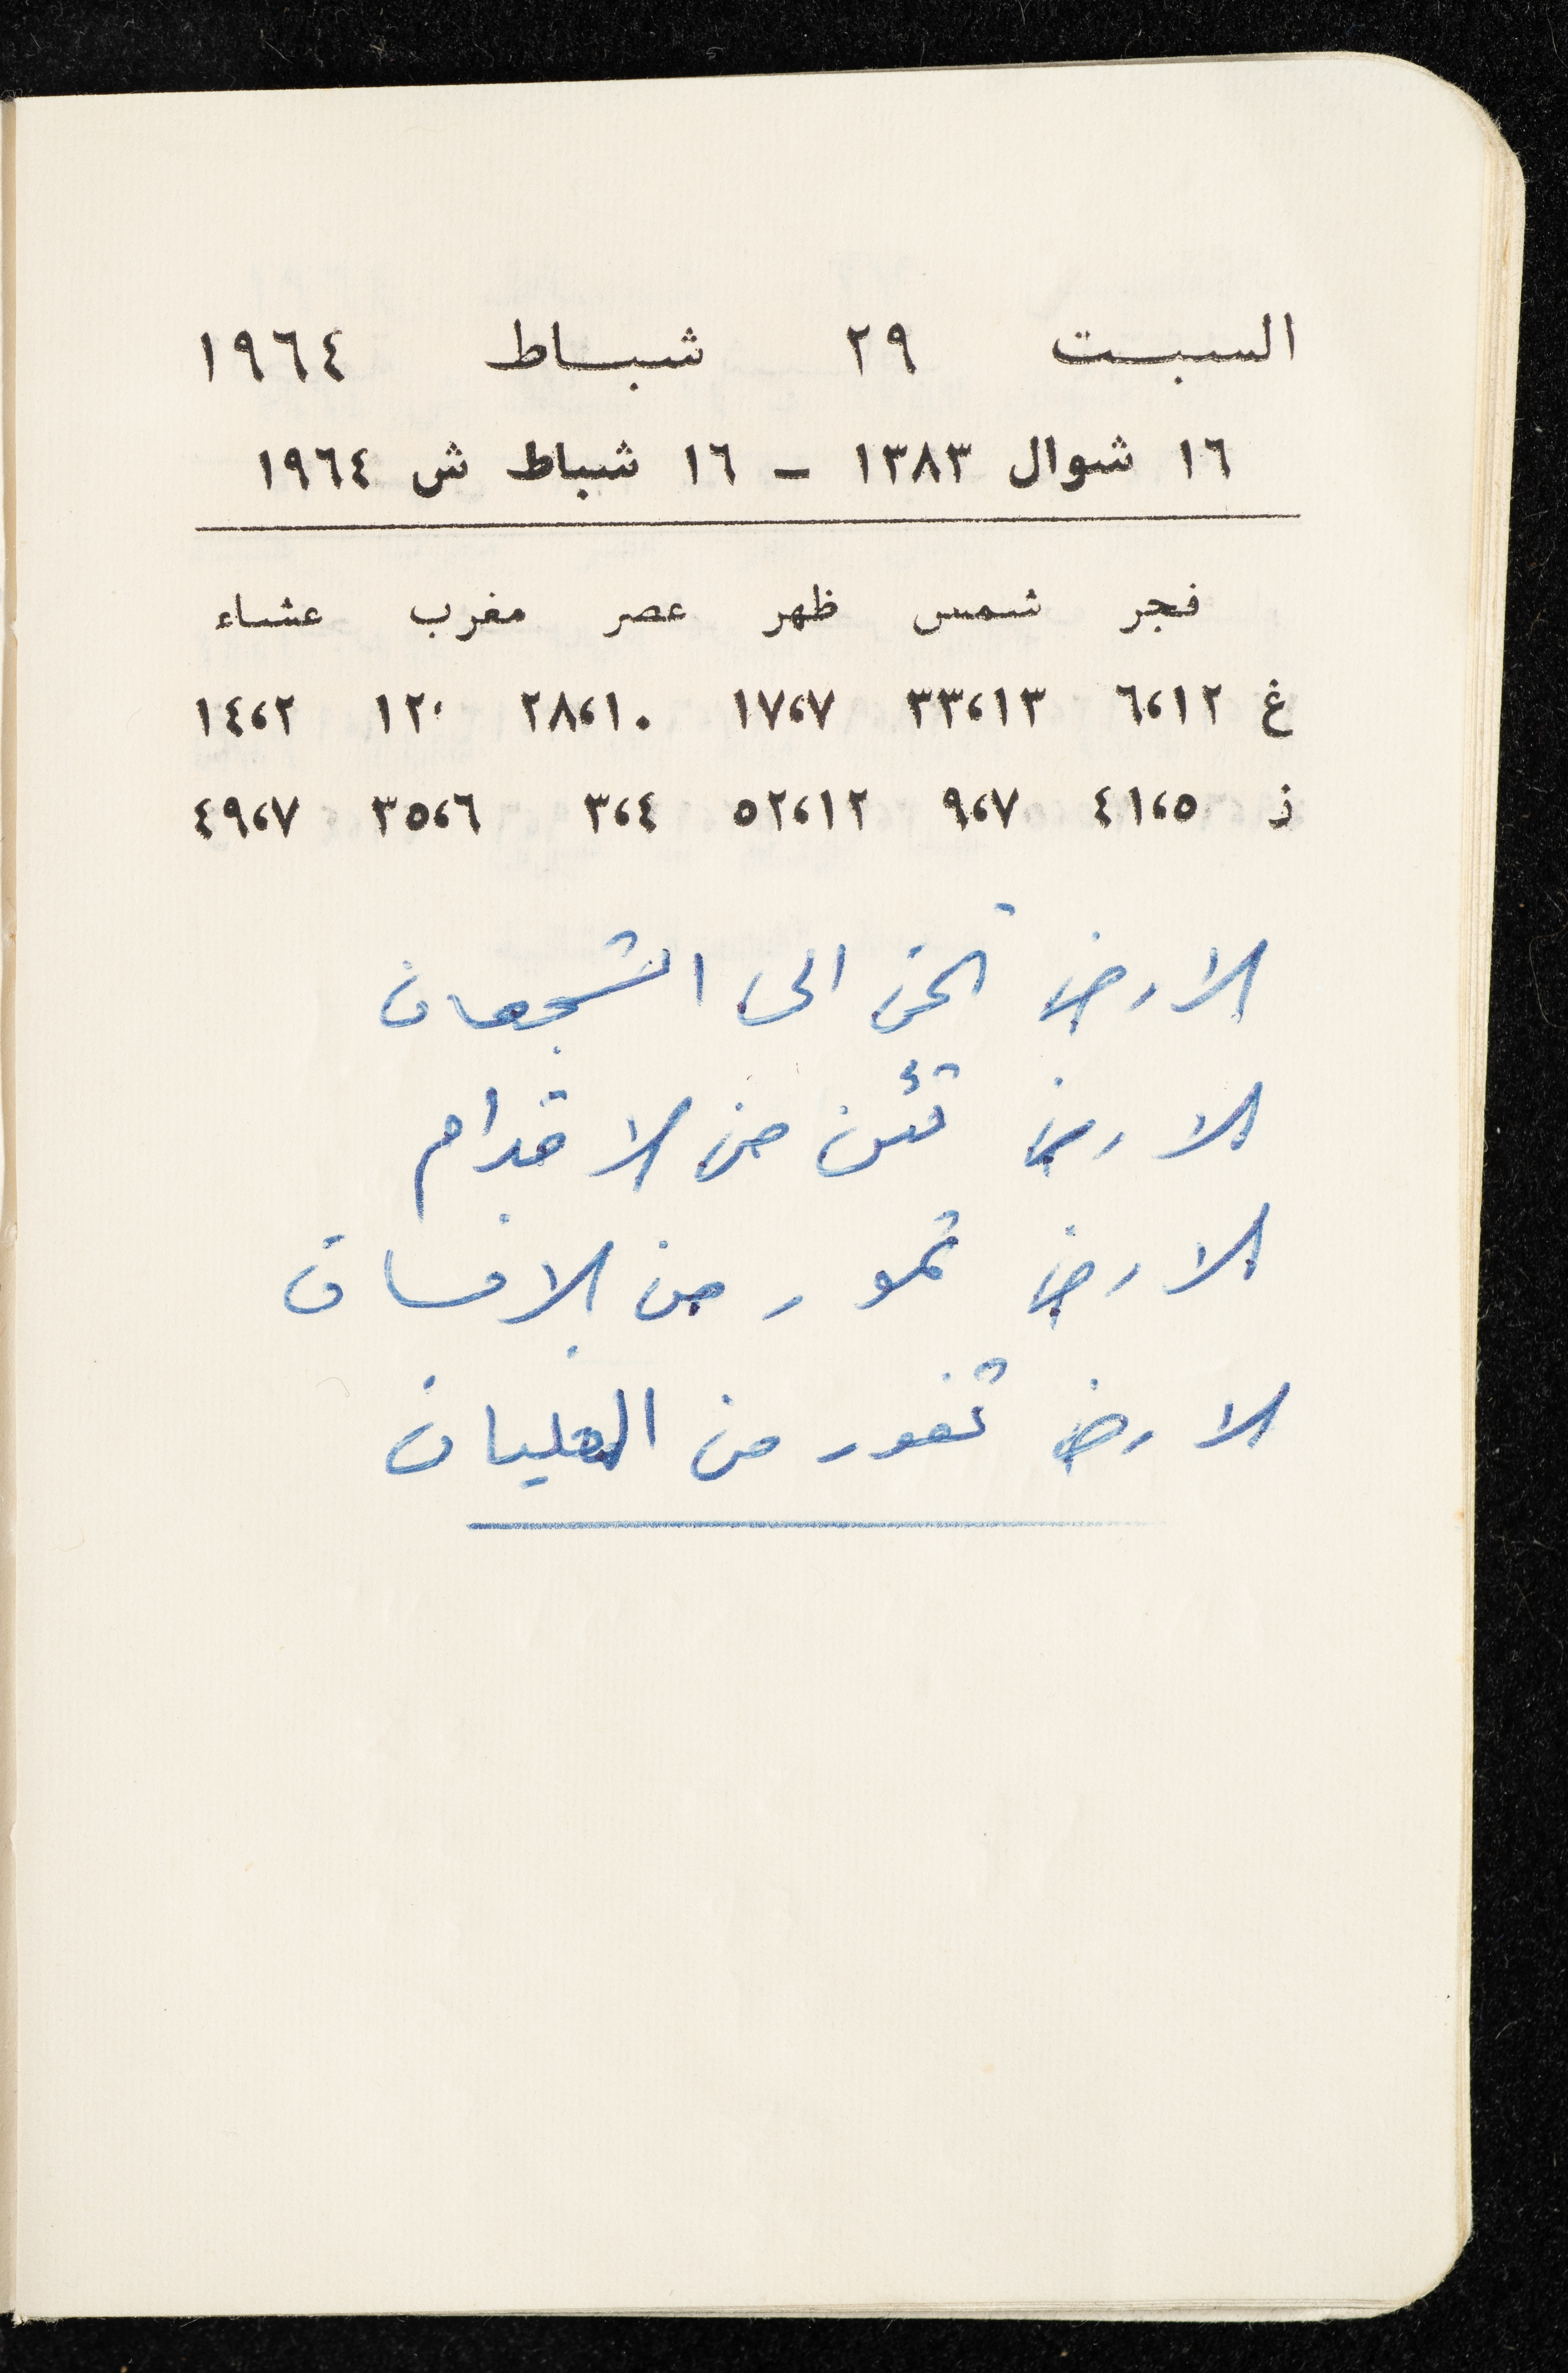 السبت ٢٩ شباط ١٩٦٤
١٦ شوال ١٣٨٣ - ١٦ شباط ش ١٩٦٤
فجر شمس ظهر عصر مغرب عشاء
غ ٦،١٢ ٣٣،١٣ ١٧،٧ ٢٨،١٠ ١٢٠ ١٤،٢
ز ٤١،٥ ٩،٧ ٥٢،١٢ ٣،٤ ٣٥،٦ ٤٩،٧
الارض تحن الى الشجعان
الارض تئن من الاقدام
الارض تمور من
الارض تفور من الغليان